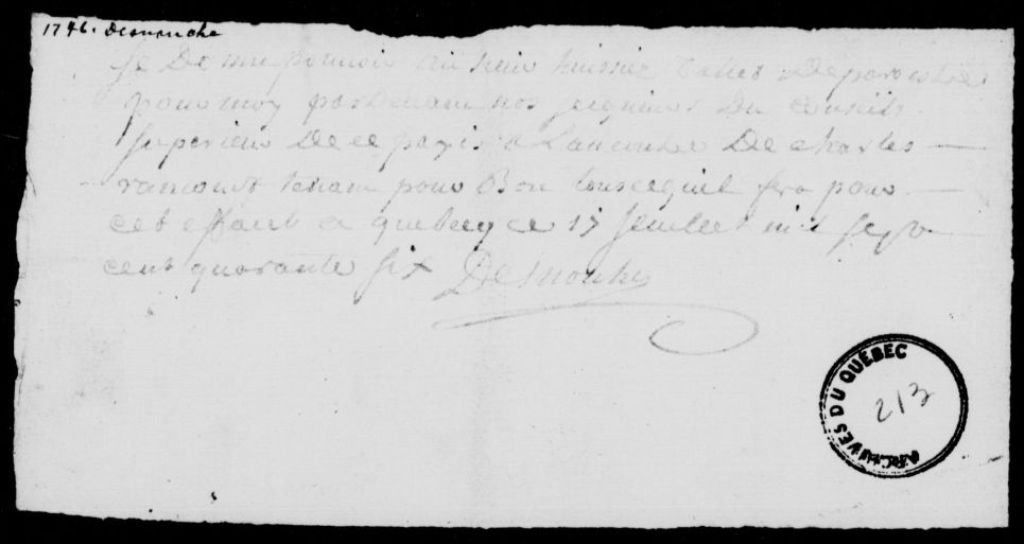 1746. Desmouche
Je Donne pouvoir au sieur huissier De paroistre
pour moy par Devant nos seigneurs Du Conseils
superieur De ce payis a Lancontre De charles
tenant pour Bon tous ce quil fera pour
cet effaict a quebecq ce 17 Jeuillet mil sept
cent quarante six Desmouches
ARCHIVES DU QUÉBEC
213